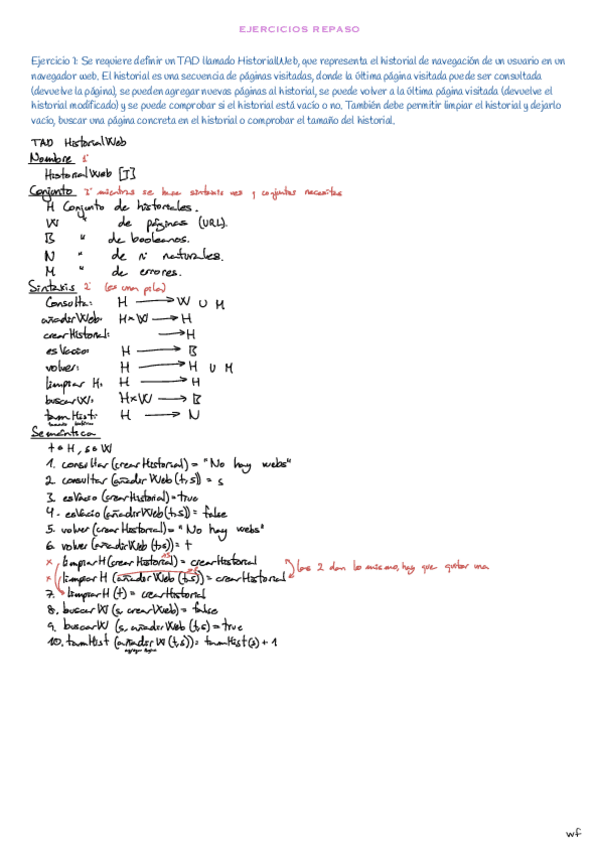 EJERCICIOS REPASO
Ejercicio 1: Se requiere definir un TAD llamado HistorialWeb, que representa el historial de navegación de un usuario en un
navegador web. El historial es una secuencia de páginas visitadas, donde la última página visitada puede ser consultada
(devuelve la página), se pueden agregar nuevas páginas al historial, se puede volver a la última página visitada (devuelve el
historial modificado) y se puede comprobar si el historial está vacío o no. También debe permitir limpiar el historial y dejarlo
vacío, buscar una página concreta en el historial o comprobar el tamaño del historial.
TAD HistorialWeb
Nombre 1°
HistorialWeb [T]
Conjunto 2° mientras se hace sintaxis ves q conjuntos necesitas
H Conjunto de historiales.
W " de páginas (URL).
B " de booleanos.
N " de nº naturales.
M " de errores.
Sintaxis 2° (es una pila)
Consulta: H → W U M
añadirWeb: H×W → H
crearHistorial: → H
esVacio: H → B
volver: H → H U M
limpiar H: H → H
buscarW: H×W → B
tamHist: H → N
Semántica
t ∈ H, s ∈ W
1. consultar (crearHistorial) = "No hay webs"
2. consultar (añadirWeb (t,s)) = s
3. esVacio (crearHistorial) = true
4. esVacio (añadirWeb (t,s)) = false
5. volver (crearHistorial) = "No hay webs"
6. volver (añadirWeb (t,s)) = t
x limpiarH (crearHistorial) = crearHistorial
x limpiarH (añadirWeb (t,s)) = crearHistorial
las 2 dan lo mismo, hay que quitar una
7. limpiarH (t) = crearHistorial
8. buscarW (s, crearWeb) = false
9. buscarW (s, añadirWeb (t,s) = true
10. tamHist (añadirW (t,s)) = tamHist(s) + 1
wf